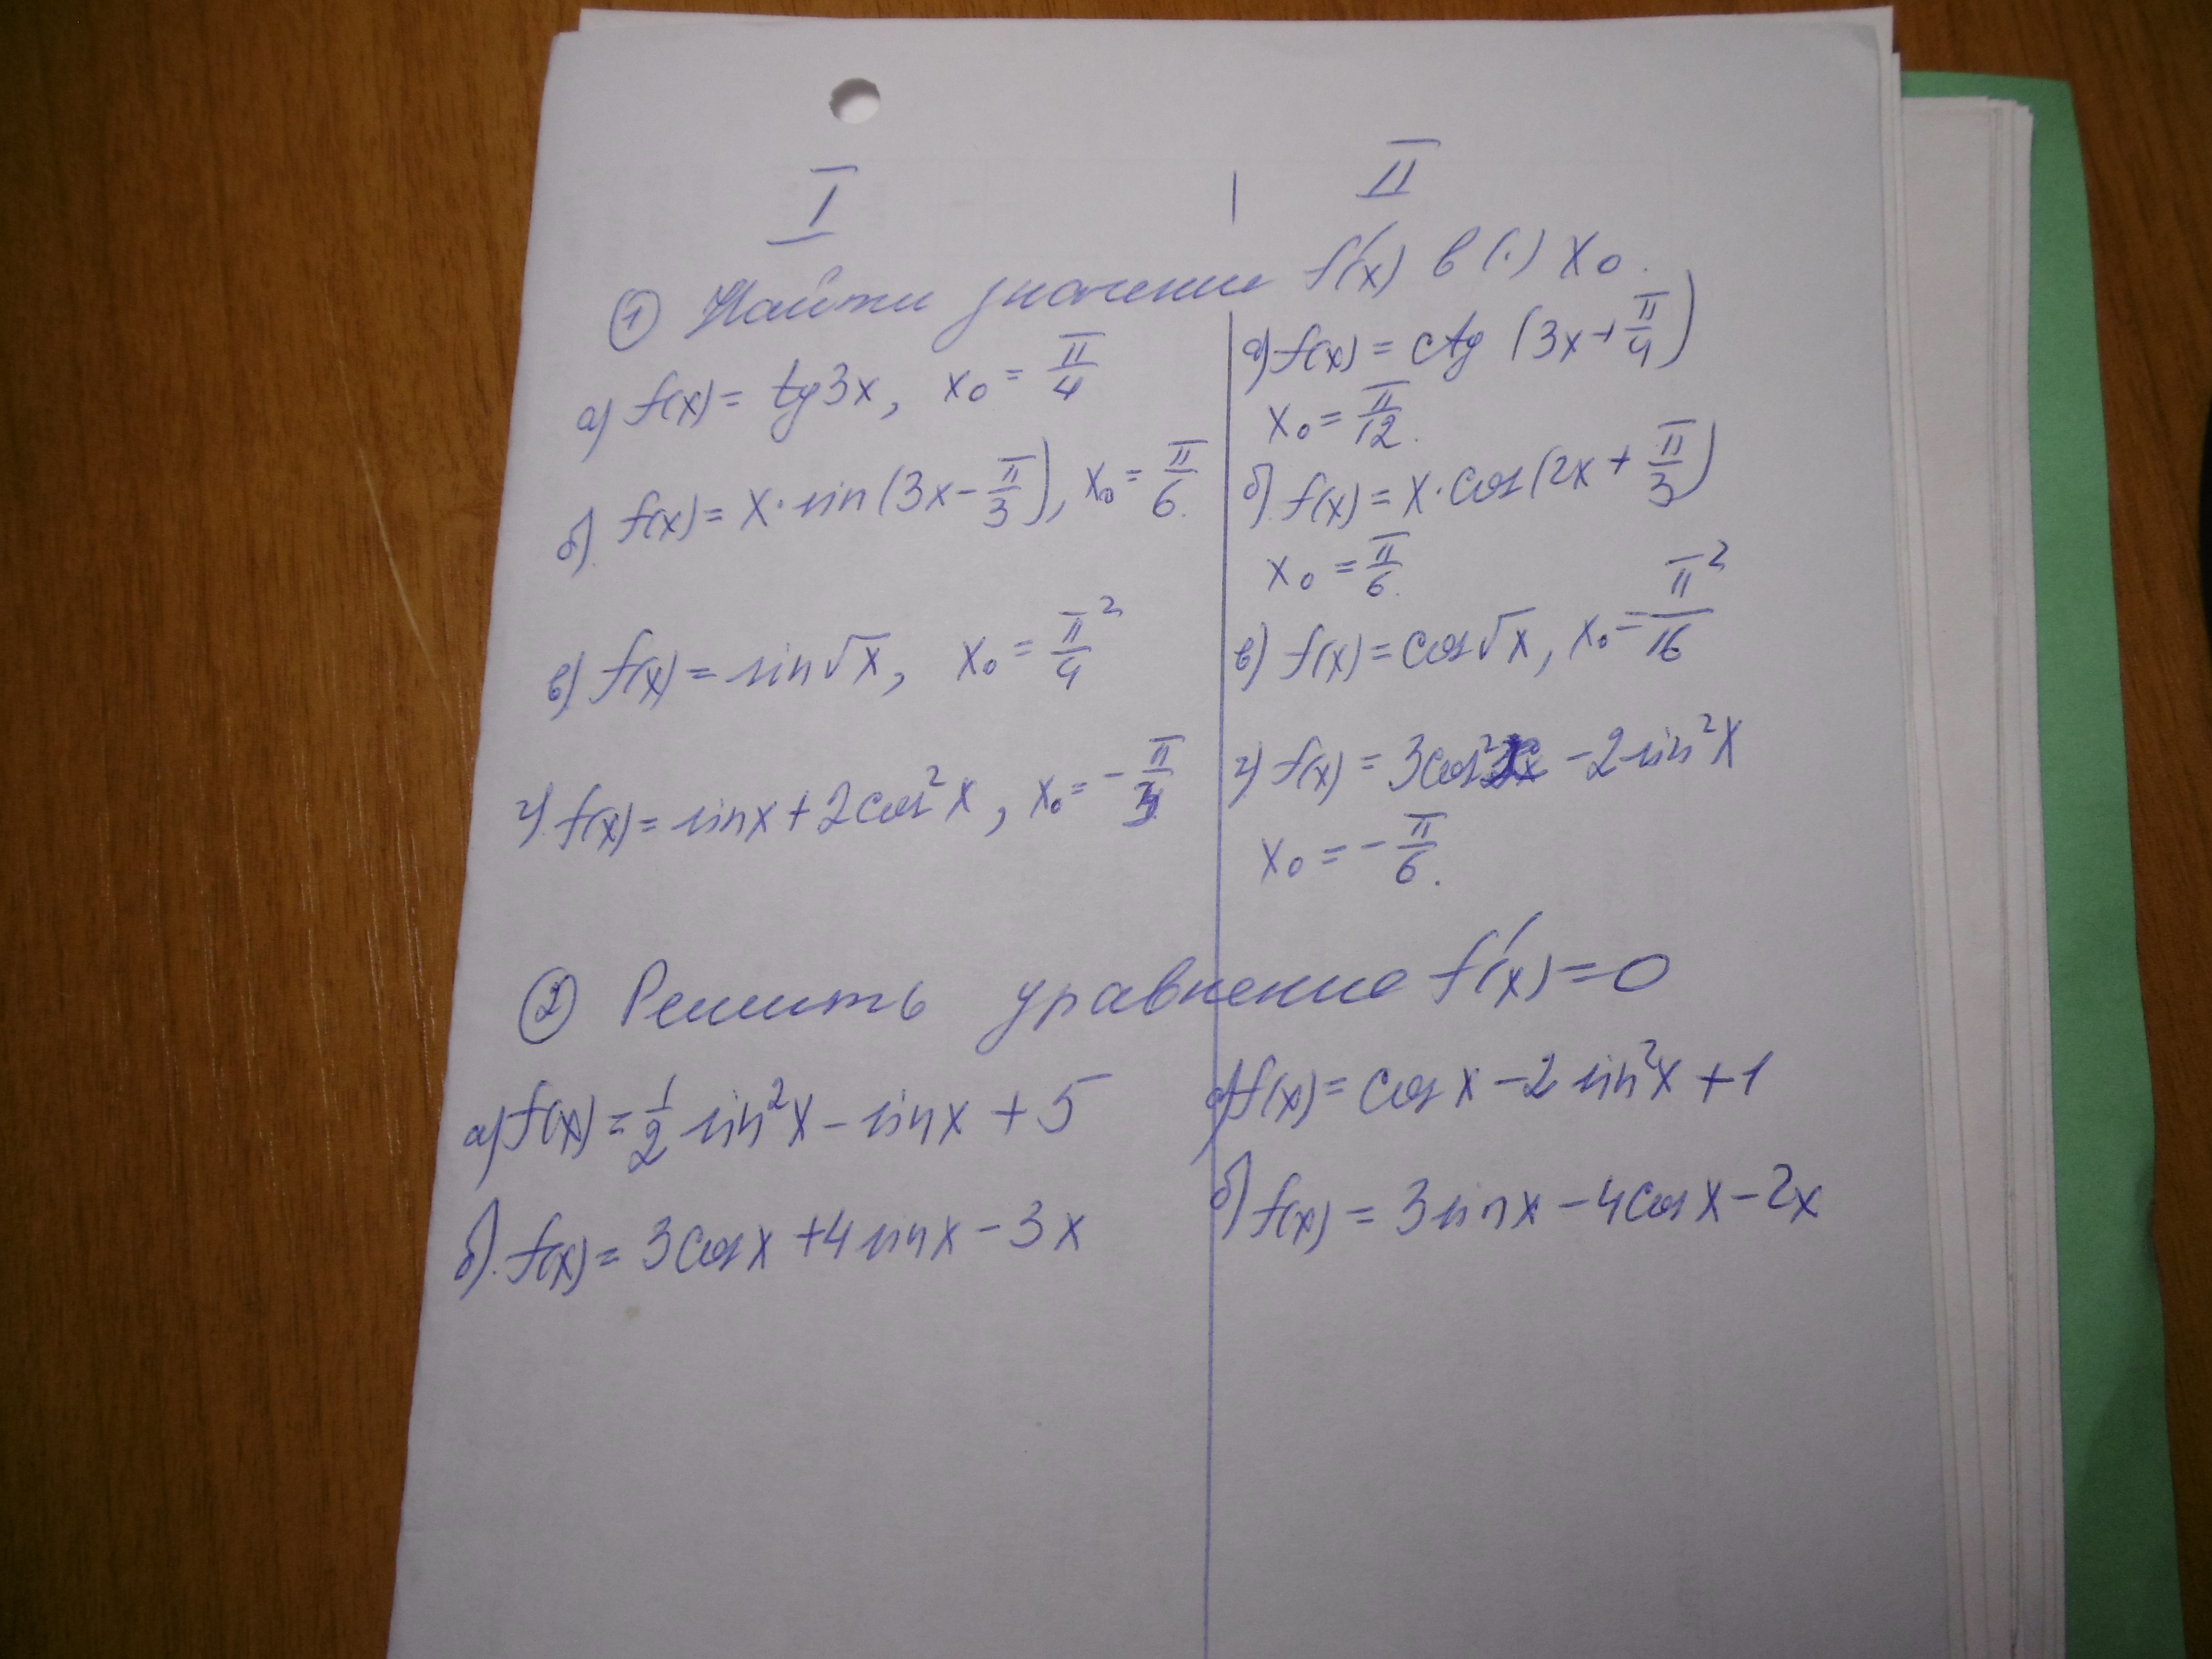 I | II
① Найти значение f'(x) в (·) x₀.
а) f(x) = tg3x, x₀ = π/4
б). f(x) = x·sin(3x - π/3), x₀ = π/6.
в) f(x) = sin√x, x₀ = π²/4
г). f(x) = sinx + 2cos²x, x₀ = -π/
а) f(x) = ctg (3x + π/4)
x₀ = π/12.
б). f(x) = x·cos(2x + π/3)
x₀ = π/6.
в) f(x) = cos√x, x₀ = π²/16
г) f(x) = 3cos² - 2sin²x
x₀ = -π/6.
② Решить уравнение f'(x) = 0
а) f(x) = 1/2 sin²x - sinx + 5
б). f(x) = 3cosx + 4sinx - 3x
а) f(x) = cosx - 2sin²x + 1
б) f(x) = 3sinx - 4cosx - 2x